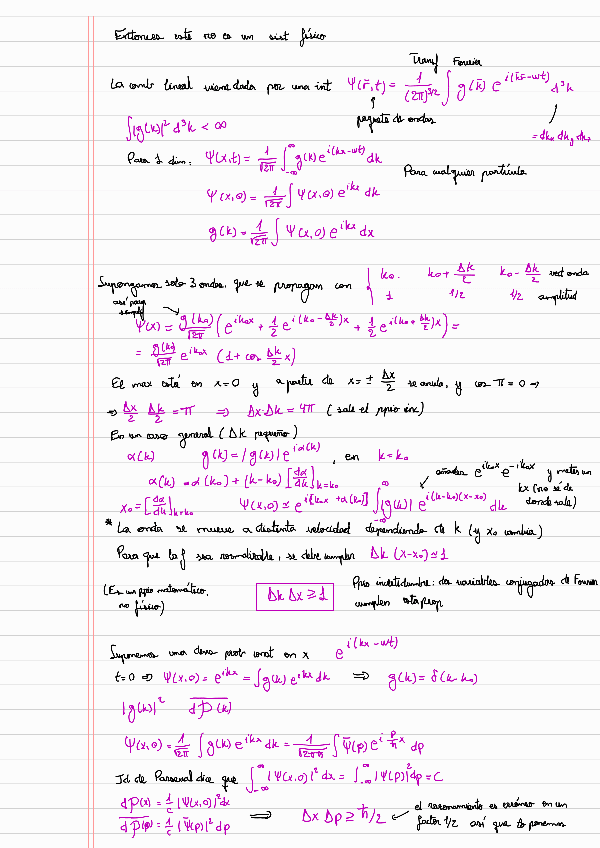 Entonces este no es un sist físico
Transf Fourier
La comb lineal viene dada por una int Ψ(r̄,t) = 1/(2π)^{3/2} ∫ g(k̄) e^{i(k̄r̄-wt)} d³k
paquete de ondas
= dkx dky dkz
∫|g(k)|² d³k < ∞
Para 1 dim: Ψ(x,t) = 1/√2π ∫_{-∞}^{∞} g(k) e^{i(kx-wt)} dk
Para cualquier partícula
Ψ(x,0) = 1/√2π ∫ Ψ(x,0) e^{ikx} dk
g(k) = 1/√2π ∫ Ψ(x,0) e^{ikx} dx
Supongamos solo 3 ondas, que se propagan con { k0. k0 + Δk/2 k0 - Δk/2 vect onda
1 1/2 1/2 amplitud
así para
Ψ(x) = g(k0)/√2π (e^{ik0x} + 1/2 e^{i(k0 - Δk/2)x} + 1/2 e^{i(k0 + Δk/2)x}) =
= g(k0)/√2π e^{ik0x} (1 + cos Δk/2 x)
El max está en x=0 y a partir de x = ± Δx/2 se anula, y cos π = 0 ⇒
⇒ Δx/2 Δk/2 = π ⇒ Δx·Δk = 4π (sale el ppio inc)
En un caso general (Δk pequeño)
α(k) g(k) = |g(k)| e^{iα(k)}, en k = k0
añades e^{ik0x} e^{-ik0x} y metes un
α(k) = α(k0) + (k-k0) [dα/dk]_{k=k0}
kx (no sé de
donde sale)
x0 = [dα/dk]_{k=k0} Ψ(x,0) ≃ e^{i[k0x + α(k0)]} ∫_{-∞}^{∞} |g(k)| e^{i(k-k0)(x-x0)} dk
* La onda se mueve a distinta velocidad dependiendo de k (y x0 cambia)
Para que la f sea normalizable, se debe cumplir Δk (x-x0) ≃ 1
(Es un ppio matemático,
no físico)
Δk Δx ≥ 1
Ppio incertidumbre: dos variables conjugadas de Fourier
cumplen esta prop
Suponemos una dens prob const en x e^{i(kx - wt)}
t=0 ⇒ Ψ(x,0) = e^{ikx} = ∫ g(k) e^{ikx} dk ⇒ g(k) = δ(k-k0)
|g(k)|² dP(k)
Ψ(x,0) = 1/√2π ∫ g(k) e^{ikx} dk = 1/√2πħ ∫ Ψ̄(p) e^{i p/ħ x} dp
Id de Parseval dice que ∫_{-∞}^{∞} |Ψ(x,0)|² dx = ∫_{-∞}^{∞} |Ψ̄(p)|² dp = C
dP(x) = 1/C |Ψ(x,0)|² dx
dP(p) = 1/C |Ψ̄(p)|² dp
⇒ Δx Δp ≥ ħ/2
el razonamiento es erróneo en un
factor 1/2 así que lo ponemos